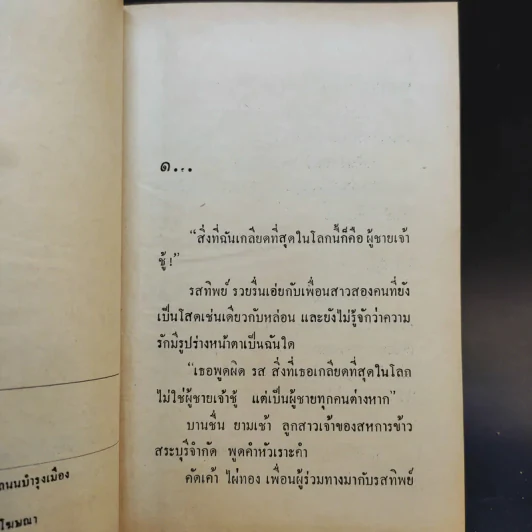 ๑...
“สิ่งที่ฉันเกลียดที่สุดในโลกนี้ก็คือ ผู้ชายเจ้า
ชู้!”
รสทิพย์ รวยรื่นเอ่ยกับเพื่อนสาวสองคนที่ยัง
เป็นโสดเช่นเดียวกับหล่อน และยังไม่รู้จักว่าความ
รักมีรูปร่างหน้าตาเป็นฉันใด
“เธอพูดผิด รส สิ่งที่เธอเกลียดที่สุดในโลก
ไม่ใช่ผู้ชายเจ้าชู้ แต่เป็นผู้ชายทุกคนต่างหาก”
บานชื่น ยามเช้า ลูกสาวเจ้าของสหการข้าว
สระบุรีจำกัด พูดคำหัวเราะคำ
คัดเค้า ไผ่ทอง เพื่อนผู้ร่วมทางมากับรสทิพย์
ถนนบำรุงเมือง
โฆษณา